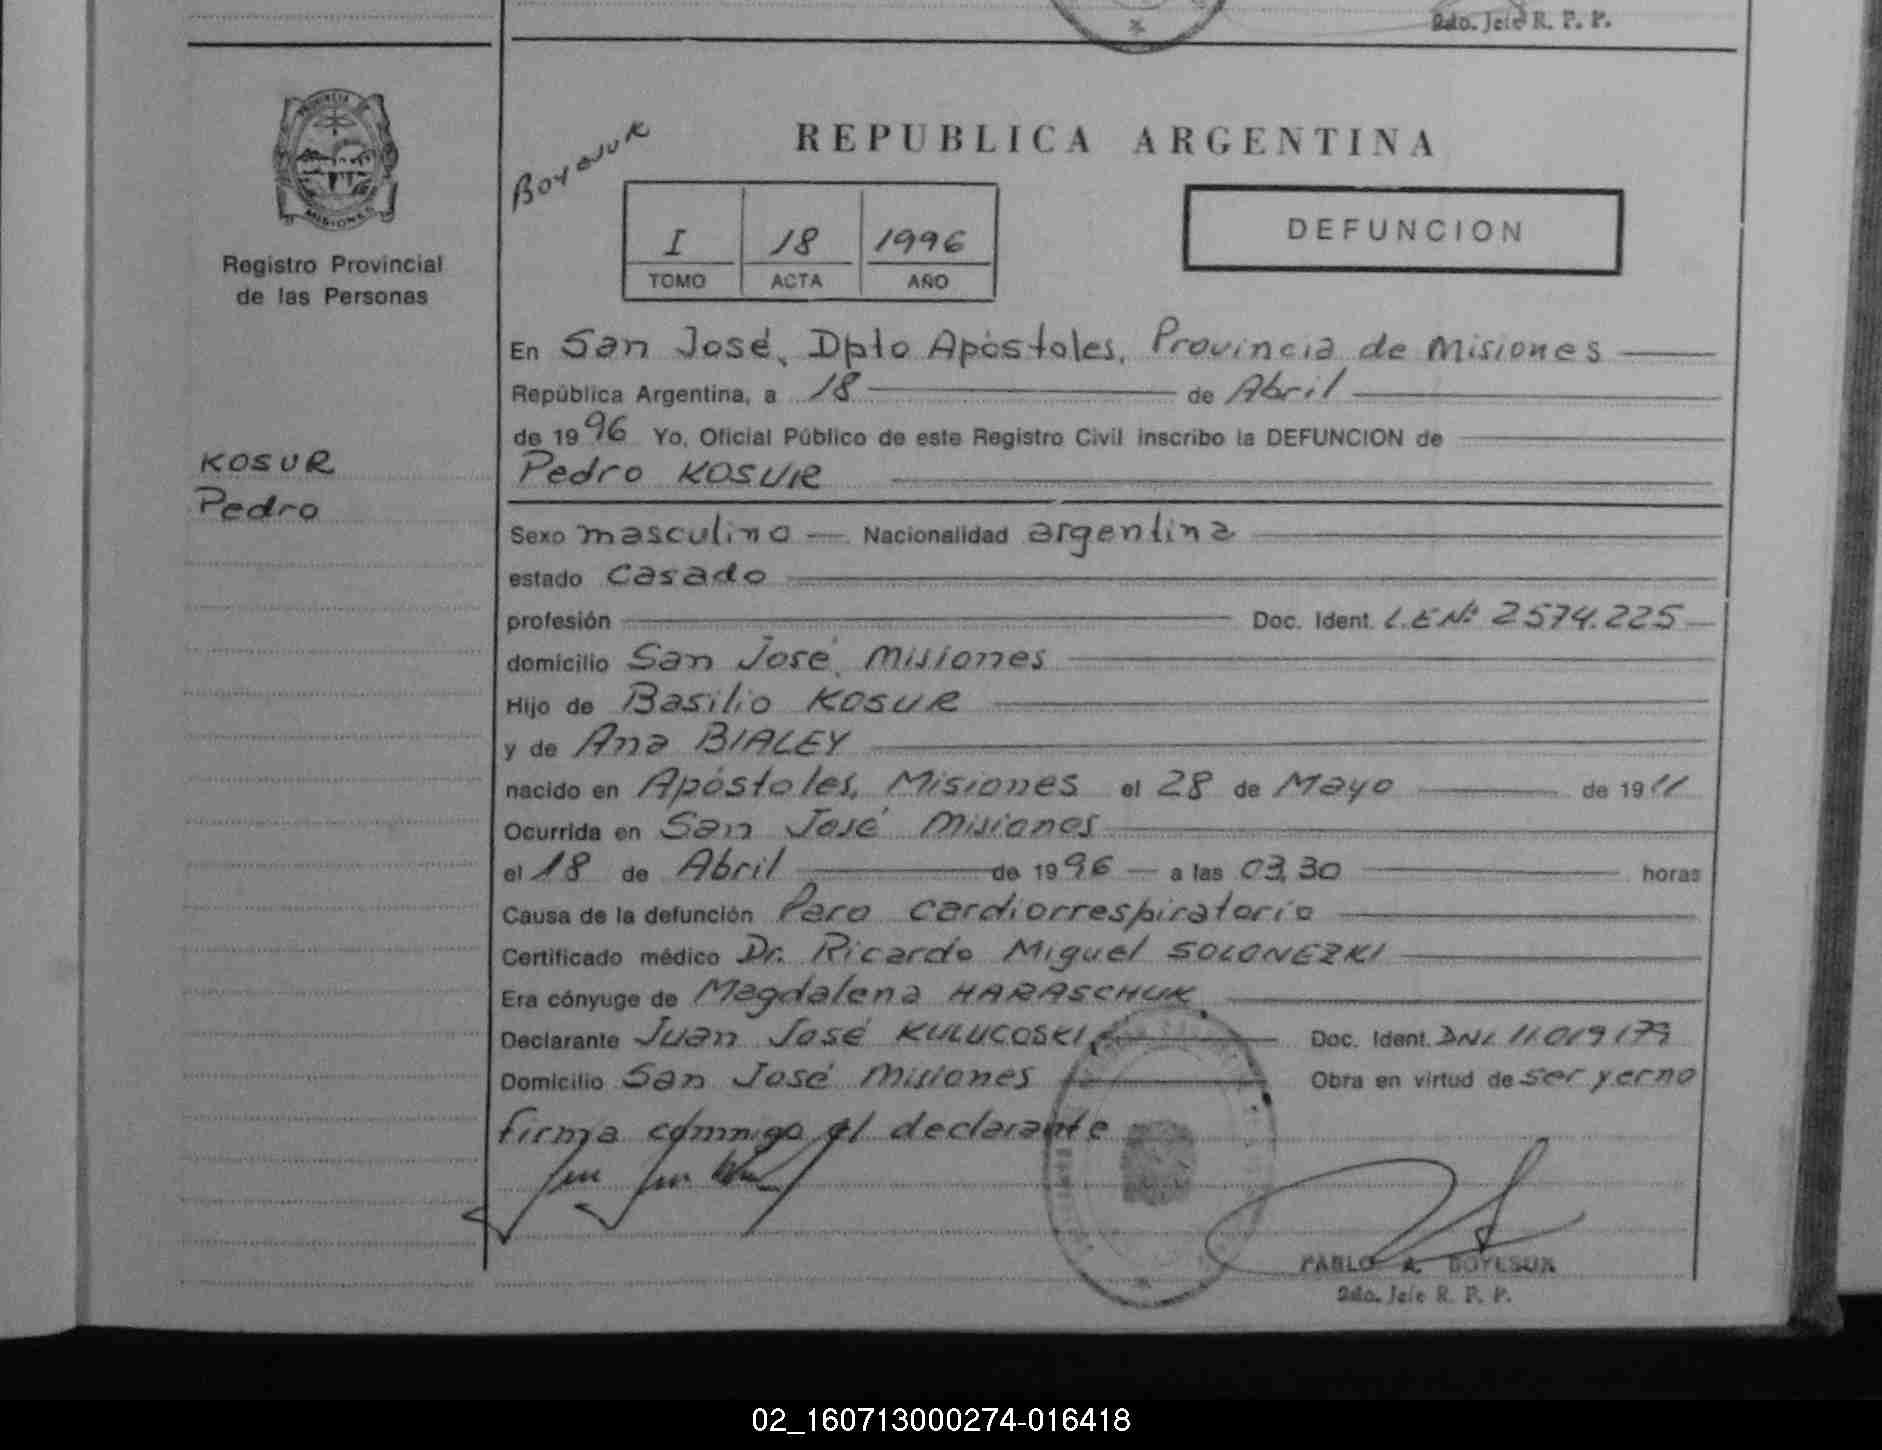 2do. Jefe R. P. P.
PROVINCIA DE
MISIONES
Registro Provincial
de las Personas
REPUBLICA ARGENTINA
Boyesuk
I 18 1996
TOMO ACTA AÑO
DEFUNCION
En San José, Dpto Apóstoles, Provincia de Misiones
República Argentina, a 18 de Abril
de 1996 Yo, Oficial Público de este Registro Civil inscribo la DEFUNCION de
KOSUR
Pedro KOSUR
Pedro
Sexo masculino Nacionalidad argentina
estado Casado
profesión Doc. Ident. L.E Nº 2574.225
domicilio San José, Misiones
Hijo de Basilio KOSUR
y de Ana BIALEY
nacido en Apóstoles, Misiones el 28 de Mayo de 1911
Ocurrida en San José Misiones
el 18 de Abril de 1996 a las 03,30 horas
Causa de la defunción Paro cardiorrespiratorio
Certificado médico Dr. Ricardo Miguel SOLONEZKI
Era cónyuge de Magdalena HARASCHUK
Declarante Juan José KULUCOSKI Doc. Ident. DNI 11.019179
Domicilio San José Misiones Obra en virtud de ser yerno
firma conmigo el declarante
PABLO A. BOYESUK
2do. Jefe R. P. P.
02_160713000274-016418